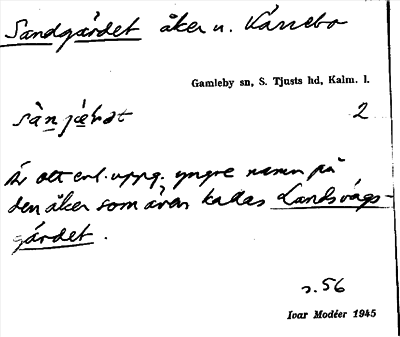 Sandgärdet åker u. Kärrebo
Gamleby sn, S. Tjusts hd, Kalm. l.
2
är ett enl. uppg. yngre namn på
den åker som även kallas Landsvägs-
gärdet.
s. 56
Ivar Modéer 1945